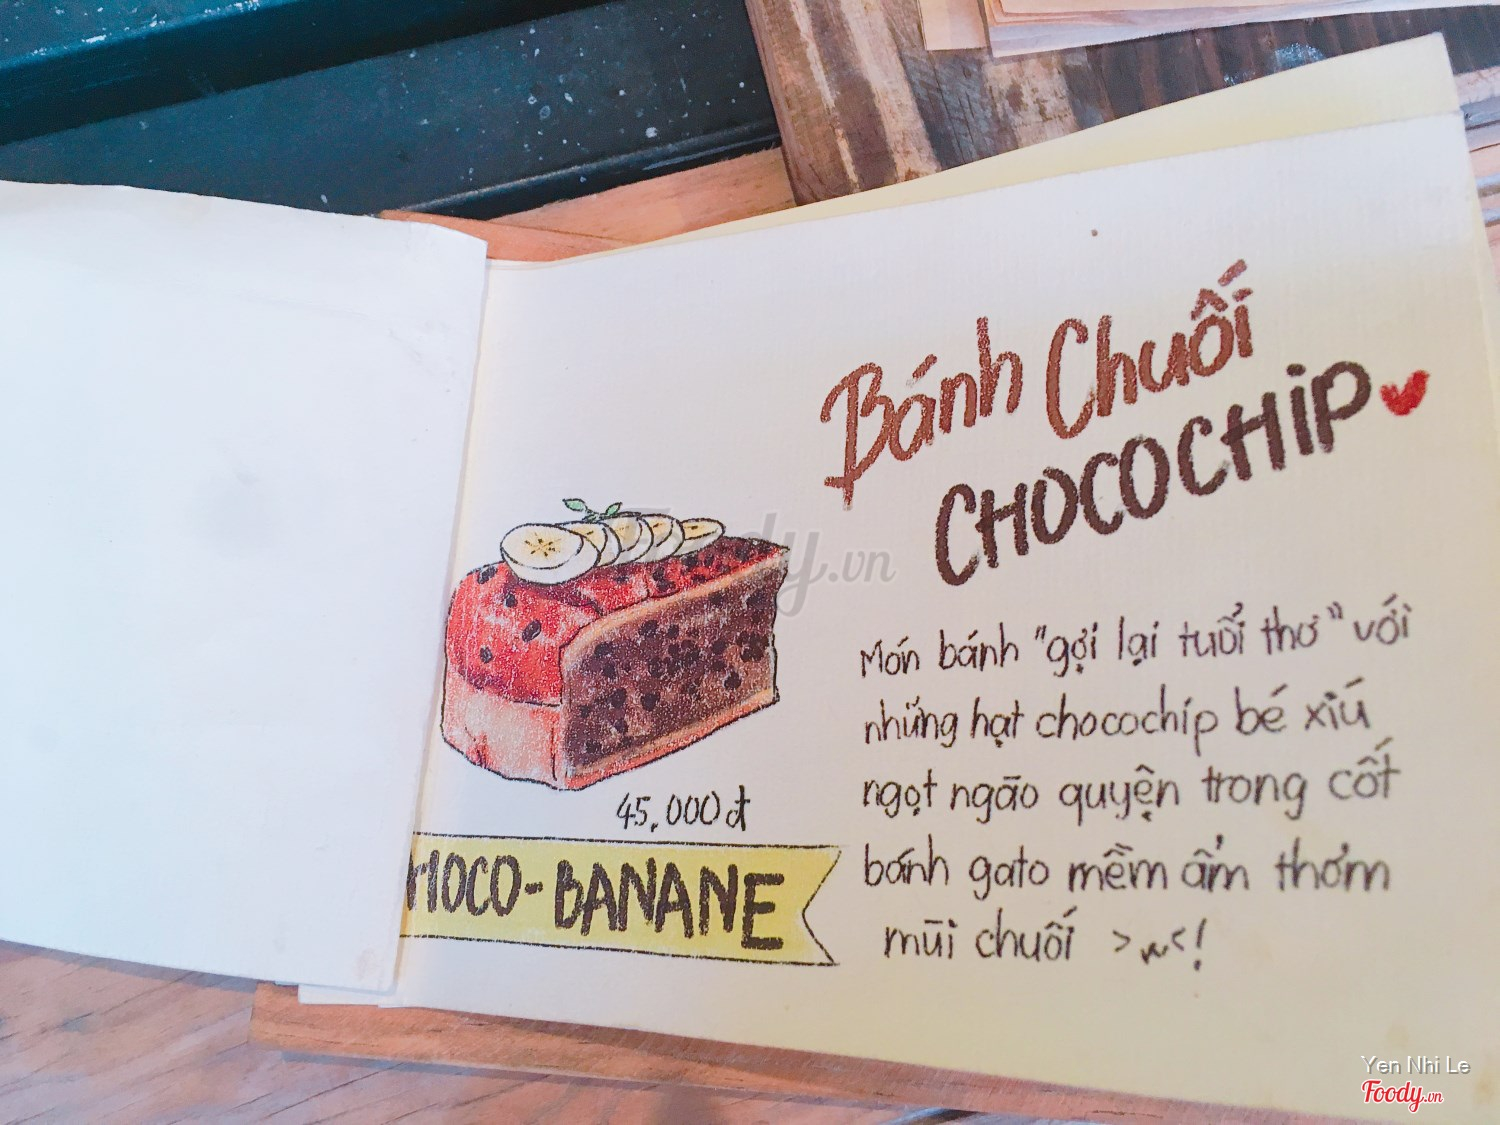 Bánh Chuối
CHOCOCHIP
Món bánh "gợi lại tuổi thơ" với
những hạt chocochíp bé xìu
ngọt ngào quyện trong cốt
bánh gato mềm ẩm thơm
mùi chuối >.<!
45,000đ
HOCO-BANANE
Foody.vn
Yen Nhi Le
Foody.vn